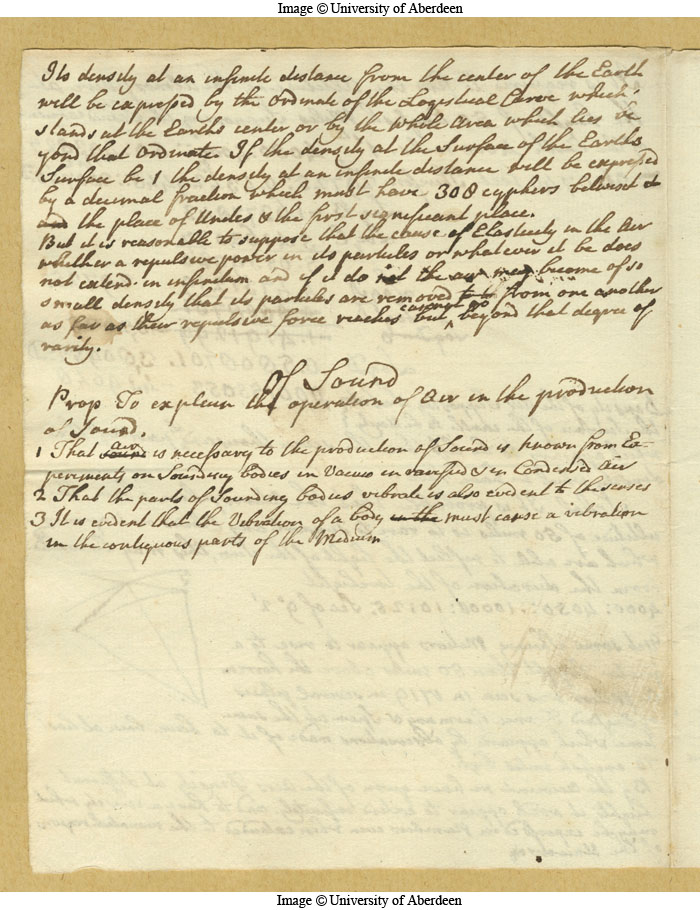 Image © University of Aberdeen
Its density at an infinite distance from the center of the Earth
will be expressed by the Ordinate of the Logistical Curve which
stands at the Earths center or by the Whole Area which lies be
yond that Ordinate. If the density at the Surface of the Earths
Surface be 1 the density at an infinite distance will be expressed
by a decimal fraction which must have 308 cyphers betwixt
and the place of Unites & the first significant place.
But it is reasonable to suppose that the cause of Elasticity in the Air
whether a repulsive power in its particles or whatever it be does
not extend in infinitum and if it do not the air may become of so
small density that its particles are removed from one another
as far as their repulsive force reaches but cannot go beyond that degree of
rarity.
Of Sound
Prop To explain the operation of Air in the production
of Sound.
1 That sound air is necessary to the production of Sound is known from Ex-
periments on Sounding bodies in Vacuo in rarefied & in Condensed Air
2 That the parts of Sounding bodies vibrate is also evident to the senses
3 It is evident that the Vibration of a body in the must cause a vibration
in the contiguous parts of the Medium
Image © University of Aberdeen